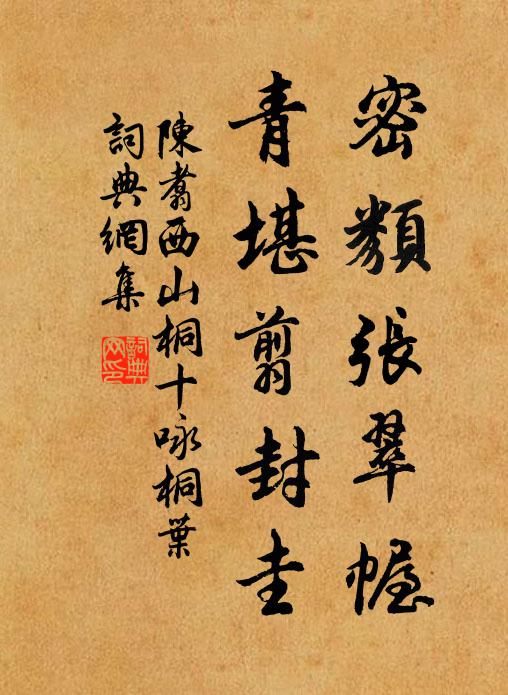 密類張翠幄
青堪翦封圭
陳翥西山桐十咏桐葉
詞典網集
詞典網印